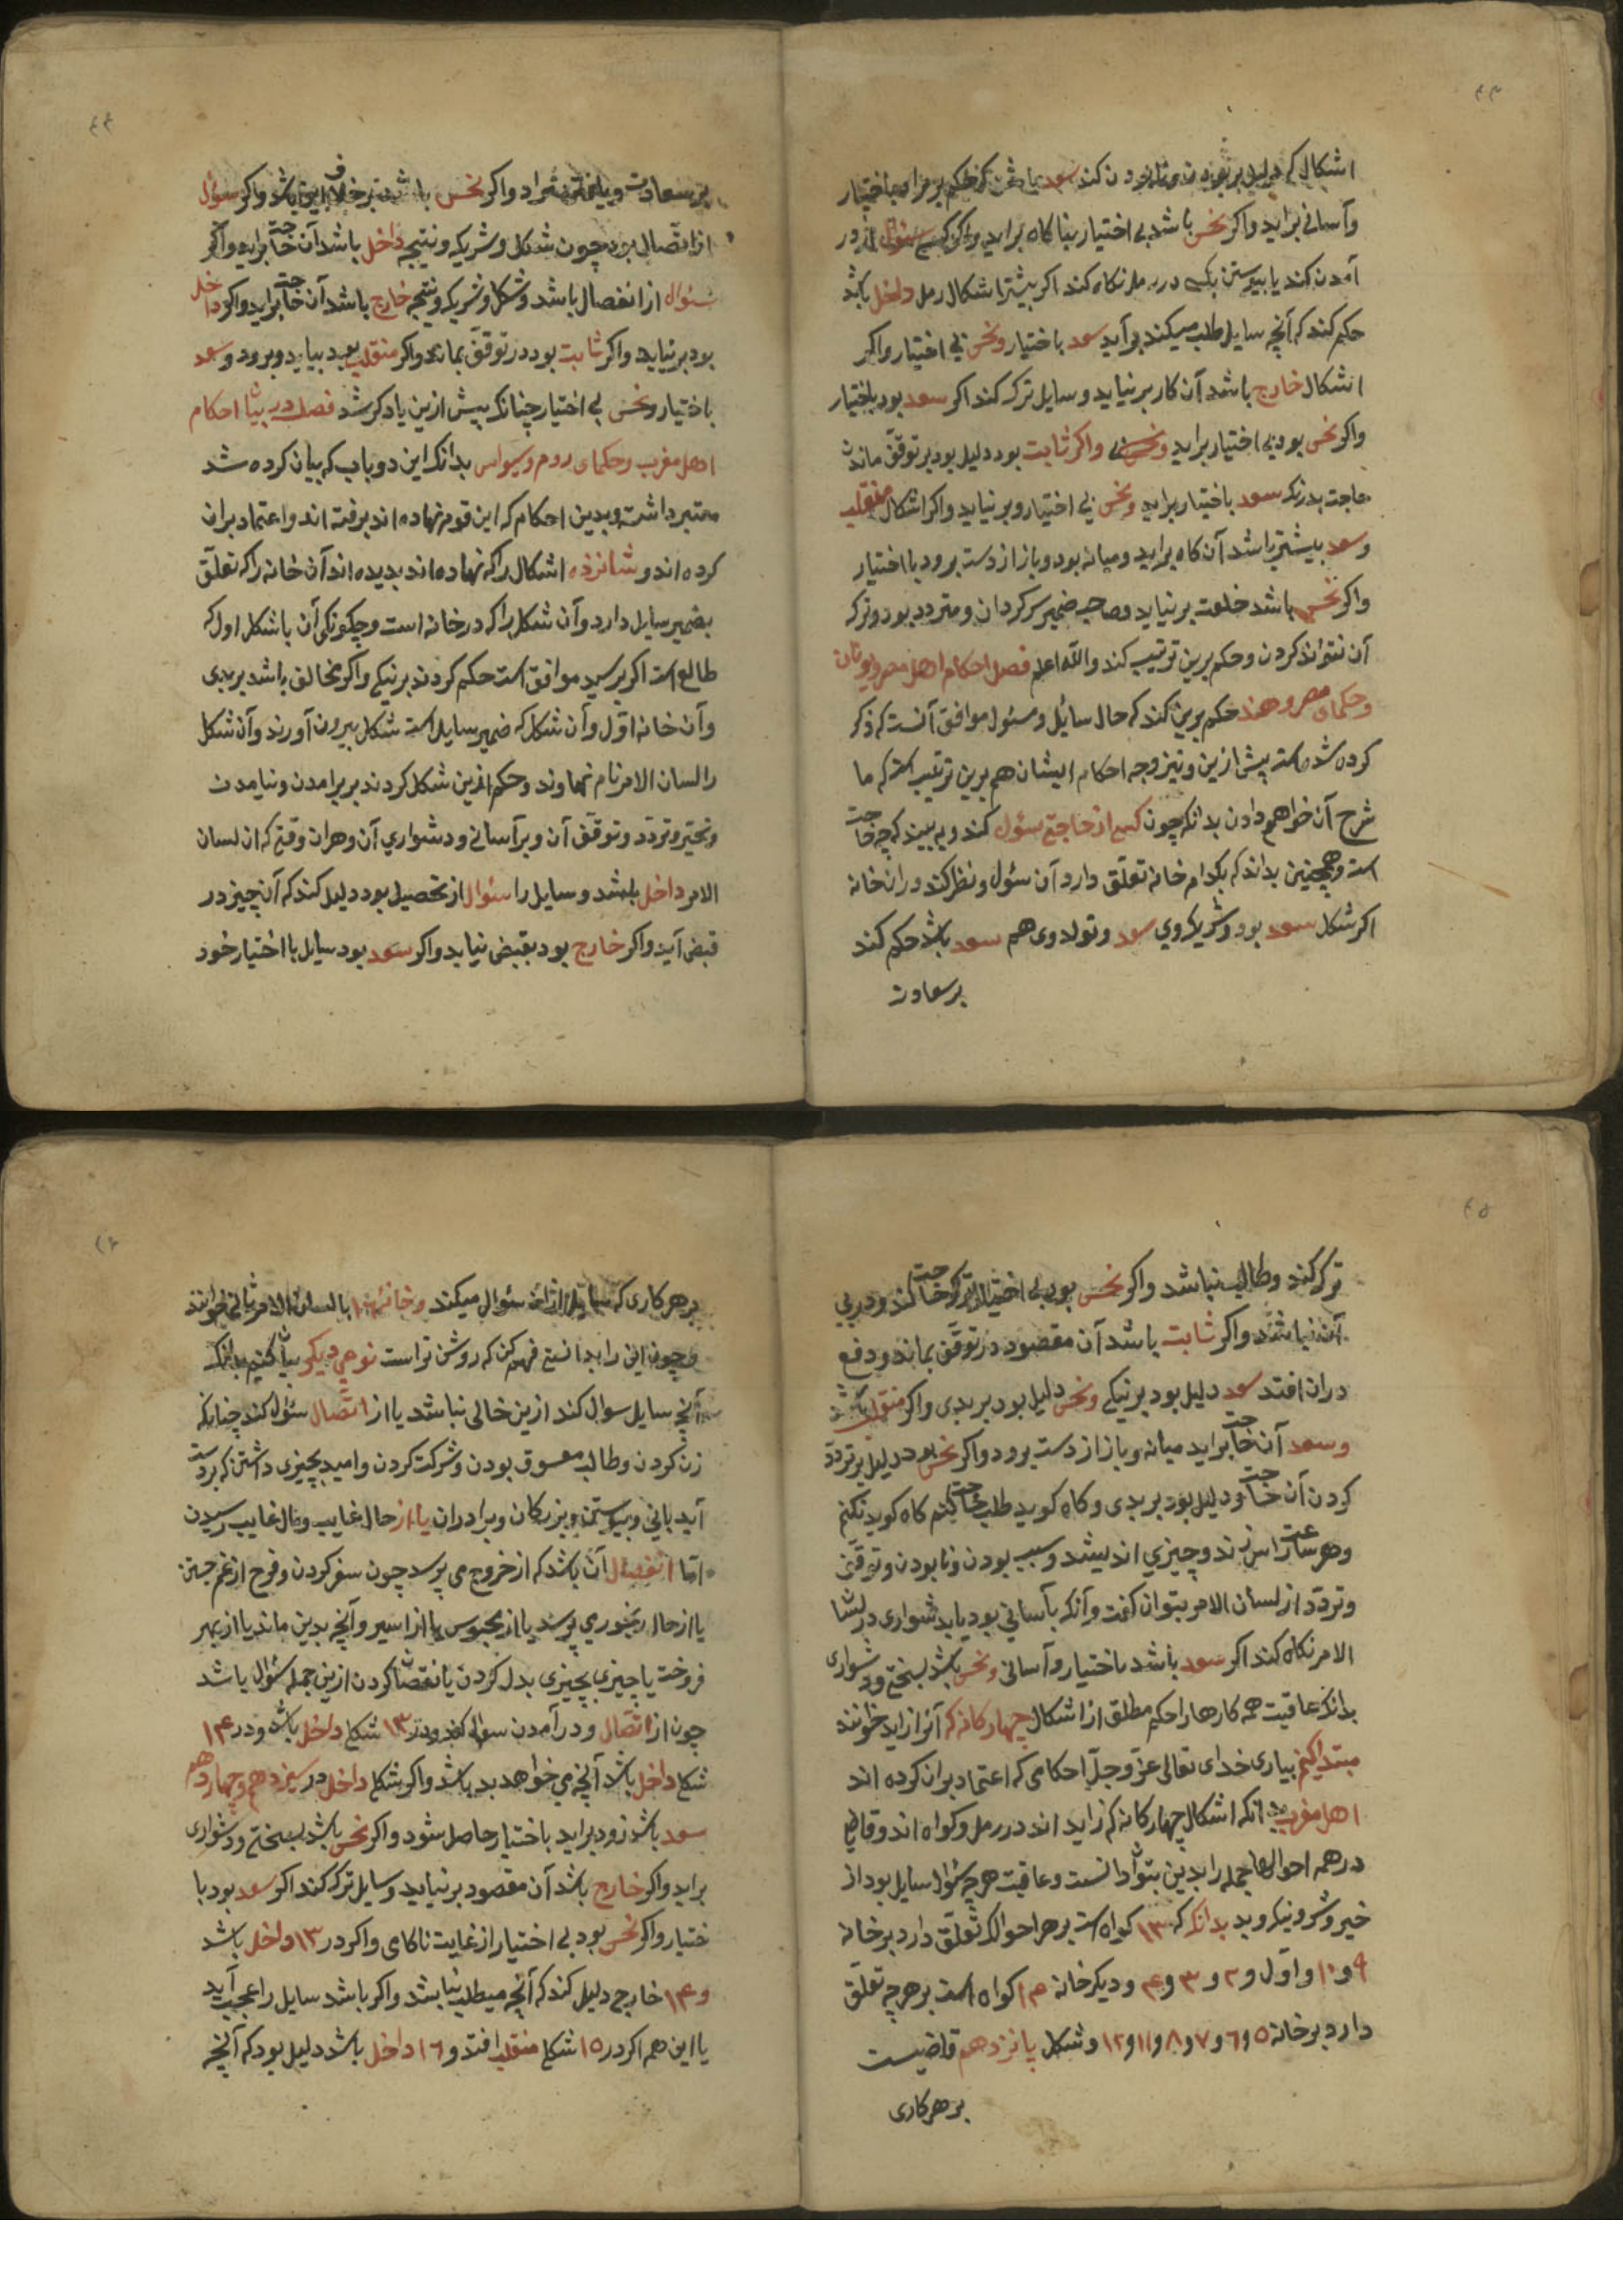 ۴۳
اشکال که دلیل بر بودن کند سعد باشد حکم بر مراد باختیار
وآسانی براید واکر نحس باشد بی اختیار بناکاه براید واکر کسی سئوال از در
آمدن کند یا بیوستن بکسی در رمل نکاه کند اکر بیشتر اشکال رمل داخل باشد
حکم کند که آنچه سایل طلب میکند برآید سعد باختیار ونحس بی اختیار واکر
اشکال خارج باشد آن کار برنیاید وسایل ترک کند اکر سعد بود باختیار
واکر نحس بود بی اختیار براید واکر ثابت بود دلیل بود بر توقف ماندن
حاجت بدرنک سعد باختیار براید ونحس بی اختیار وبرنیاید واکر اشکال منقلب
وسعد بیشتر باشد آن کاه براید ومیانه بود وباز از دست برود با اختیار
واکر نحس باشد برنیاید وصاحب ضمیر سرکردان ومتردد بود وترک
آن نتواند کردن وحکم برین ترتیب کند والله اعلم فصل احکام اهل مصر ویونان
وحکمای مصر وهند حکم برین کند که حال سائل ومسئول موافق آنست که ذکر
کرده شده است پیش ازین ونیز وجه احکام ایشان هم برین ترتیب است که ما
شرح آن خواهم دادن بدانکه چون کسی از حاجتی سئول کند وببیند که چه حاجت
است وهمچنین بداند که بکدام خانه تعلق دارد آن سئول ونظر کند دران خانه
اکر شکل سعد بود وشریک وی سعد وتولد وی هم سعد باشد حکم کند
بر سعادت
۴۴
بر سعادت ویافتن مراد واکر نحس باشد بر خلاف این باشد واکر سئول
از اتصال بود چون شکل وشریک ونتیجه داخل باشد آن حاجت براید واکر
سئوال از انفصال باشد وشکل وشریک ونتیجه خارج باشد آن حاجت براید واکر داخل
بود برنیاید واکر ثابت بود در توقف بماند واکر منقلب بود بیاید وبرود وسعد
باختیار ونحس بی اختیار چنانک پیش ازین یاد کرده شد فصل در بیان احکام
اهل مغرب وحکمای روم وسیواس بدانک این دو باب که بیان کرده شد
معتبر داشته وبدین احکام که این قوم نهاده اند برفته اند واعتماد بران
کرده اند وشانزده اشکال را که نهاده اند بدیده اند آن خانه را که تعلق
بضمیر سایل دارد وآن شکل را که در خانه است وچکونکی آن با شکل اول که
طالع است اکر برسید موافق است حکم کردند بر نیکی واکر مخالف باشد بر بدی
وآن خانه اول وآن شکل که ضمیر سایل است شکل بیرون آورند وآن شکل
را لسان الامر نام نهاوند وحکم ازین شکل کردند بر برامدن ونیامدن
وتحیر وتردد وتوقف آن وبر آسانی ودشواری آن وهران وقتی که ان لسان
الامر داخل باشد وسایل را سئوال از تحصیل بود دلیل کند که آن چیز در
قبض آید واکر خارج بود بقبض نیاید واکر سعد بود سایل با اختیار خود
۴۵
ترک کند وطالب نباشد واکر نحس بود بی اختیار ترک حاجت کند ودر پی
آن نباشد واکر ثابت باشد آن مقصود در توقف بماند ودفع
دران افتد سعد دلیل بود بر نیکی ونحس دلیل بود بر بدی واکر منقلب باشد
وسعد آن حاجت براید میانه وباز از دست برود واکر نحس بود دلیل بر تردد
کردن آن حاجت ودلیل بود بر بدی وکاه کوید طلب حاجت کنم کاه کوید نکنم
وهر ساعت راس زند وچیزی اندیشد وسبب بودن ونابودن وتوقف
وتردد از لسان الامر بتوان کفت وآنکه بآسانی بود یا بدشواری در لسان
الامر نکاه کند اکر سعد باشد باختیار وآسانی ونحس باشد بسختی ودشواری
بدانک عاقبت همه کارها را حکم مطلق از اشکال چهار کانه که آنرا زاید خوانند
مبتدا کنیم بیاری خدای تعالی عز وجل احکامی که اعتماد بران کرده اند
اهل مغرب بدانکه اشکال چهار کانه که زاید اند در رمل وکواه اند وقاضی
در همه احوال ها جمله را بدین بتوان دانست وعاقبت هر چه سئوال سایل بود از
خیر وشر ونیک وبد بدانک که ۱۳ کواه است بر هر احوال که تعلق دارد بر خانه
۹ و۱۰ واول و۲ و۳ و۴ ودیکر خانه ۱۴ کواه است بر هر چه تعلق
دارد بر خانه ۵ و۶ و۷ و۸ و۱۱ و۱۲ وشکل پانزدهم قاضیست
بر هر کاری
۴۶
بر هر کاری که سایل از ان سئوال میکند وخانه ۱۶ با لسان الامر ثانی خوانند
وچون این را بدانستی فهم کن که روشن تر است نوعی دیکر بیان کنیم بدانک
آنچه سایل سوال کند ازین خالی نباشد یا از اتصال سئوال کند چنانکه
زن کردن وطالب معسوق بودن وشرکت کردن وامید بچیزی داشتن که بر دست
آید یانی وبیوستن وبزرکان وبرادران یا از حال غایب ومال غایب رسیدن
اما انفصال آن باشد که از خروج می پرسد چون سفر کردن وفرج از غم جستن
یا از حال رنجوری پرسد یا از محبوس یا از اسیر وآنچه بدین ماند یا از بهر
فروخت یا چیزی بچیزی بدل کردن یا نقصان کردن ازین جمله سئوال باشد
چون از اتصال ودر آمدن سوال کند ودر ۱۳ شکل داخل باشد ودر ۱۴
شکل داخل باشد آنچه می خواهد بد باشد واکر شکل داخل در سیزدهم وچهاردهم
سعد باشد زود براید باختیار حاصل شود واکر نحس باشد بسختی ودشواری
براید واکر خارج باشد آن مقصود برنیاید وسایل ترک کند اکر سعد بود با
ختیار واکر نحس بود بی اختیار از غایت ناکامی واکر در ۱۳ داخل باشد
و۱۴ خارج دلیل کند که آنچه میطلبد نباشد واکر باشد سایل را عجب آید
یا این هم اکر در ۱۵ شکل منقلب افتد و۱۶ داخل باشد دلیل بود که آنچه